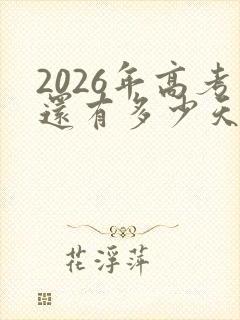 2026年高考
還有多少天
花浮萍